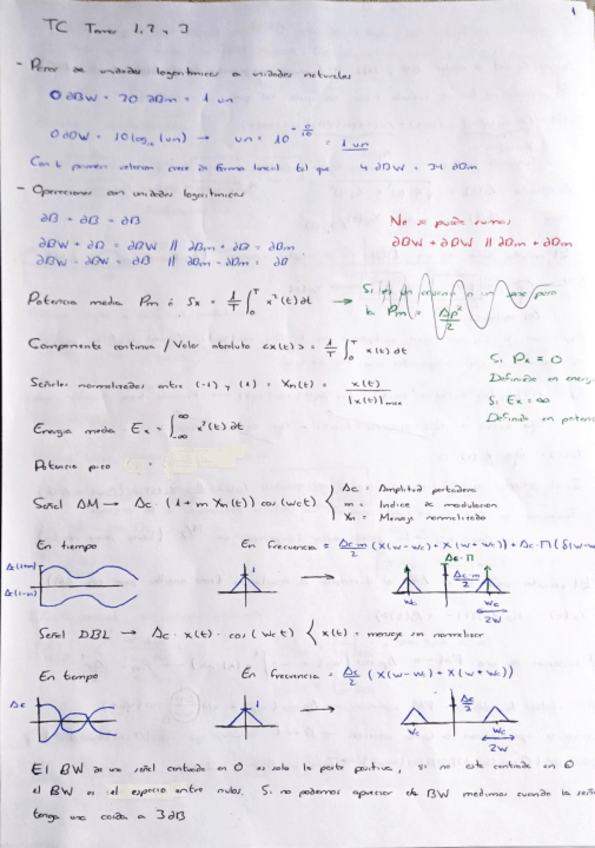 1
TC Temas 1, 2 y 3
- Pasar de unidades logaritmicas a unidades naturales
0 dBW = 30 dBm = 1 un
0 dBW = 10 log₁₀ (un) → un = 10^(0/10) = 1 un
Con la primera relacion crece de forma lineal tal que 4 dBW = 34 dBm
- Operaciones con unidades logaritmicas
dB + dB = dB
No se puede sumar
dBW + dB = dBW // dBm + dB = dBm
dBW + dBW // dBm + dBm
dBW - dBW = dB // dBm - dBm = dB
Potencia media Pm ó Sx = 1/T ∫₀ᵀ x²(t) dt →
Si es un o un para
la Pm = Ap²/2
Componente continua / Valor absoluto <x(t)> = 1/T ∫₀ᵀ x(t) dt
Si Px = 0
Señales normalizadas entre (-1) y (1) = Xn(t) = x(t) / |x(t)|max
Definida en energ
Si Ex = ∞
Definida en potenc
Energia media Ex = ∫₋∞^∞ x²(t) dt
Potencia pico
Señal AM → Ac · (1 + m Xn(t)) cos (wct)
Ac = Amplitud portadora
m = Indice de modulacion
Xn = Mensaje normalizado
En tiempo
En frecuencia = Ac·m/2 (X(w-wc) + X(w+wc)) + Ac·Π (δ(w-w
Ac(1+m)
Ac(1-m)
1
Ac·Π
Ac·m/2
wc
wc
2W
Señal DBL → Ac · x(t) · cos (wct) { x(t) = mensaje sin normalizar
En tiempo
En frecuencia = Ac/2 (X(w-wc) + X(w+wc))
Ac
1
Ac/2
wc
wc
2W
El BW de una señal centrada en 0 es solo la parte positiva, si no esta centrada en 0
el BW es el espacio entre nulos. Si no podemos apreciar el BW medimos cuando la señ
tenga una caida a 3dB